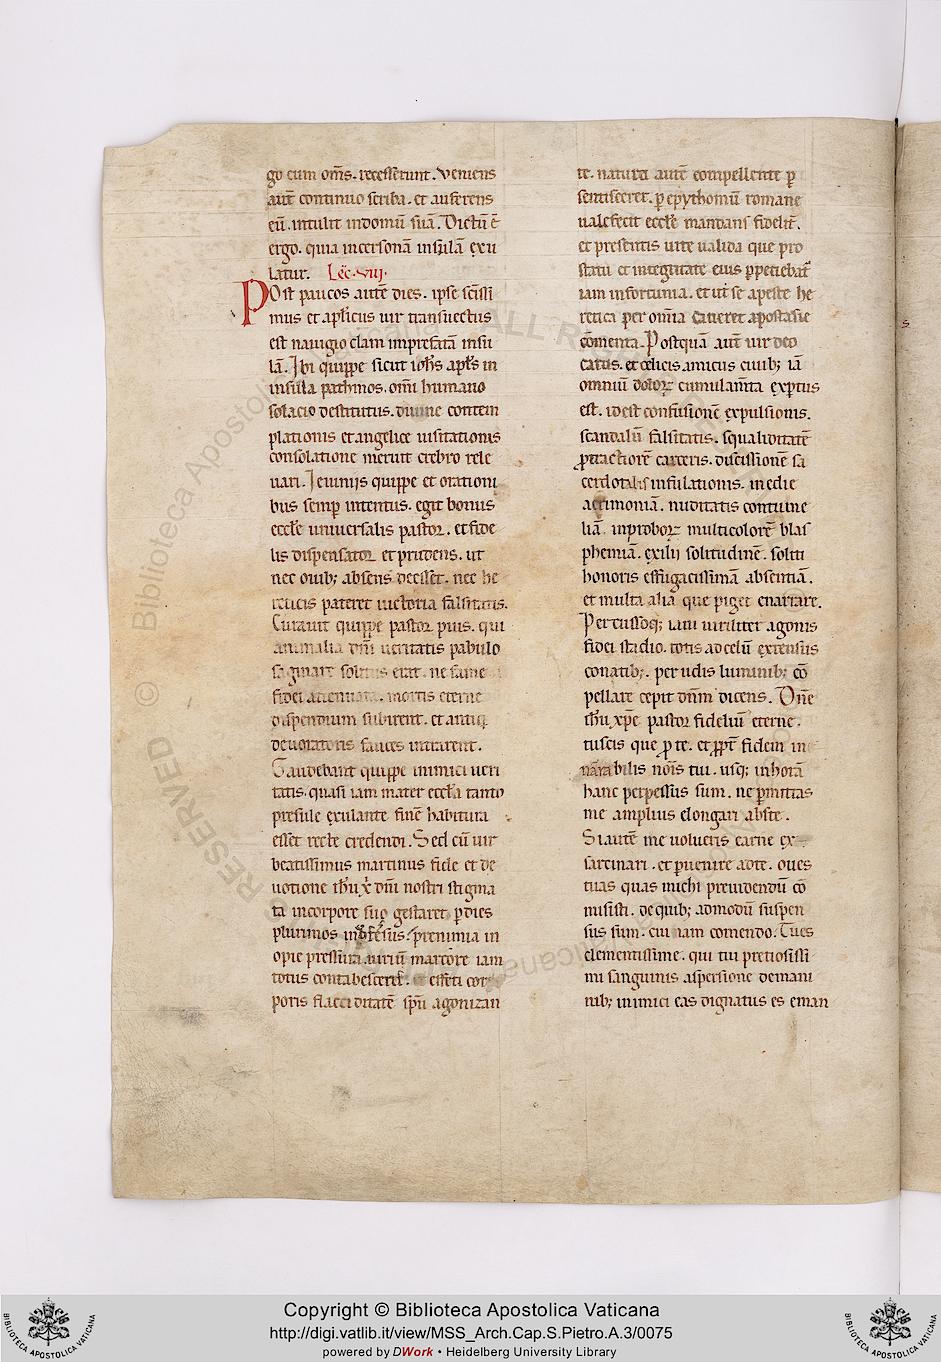 go cum om̄s. recesserunt. Veniens
aut̄ continuo scriba. et auferens
eū. intulit indomū suā. Dictū ē
ergo. quia incersonā insulā exu
latur. Lēc. VIIJ.
POst paucos autē dies. ipse sc̄issi
mus et ap̄licus uir transuectus
est nauigio clam imprefatā insu
lā. Ibi quippe sicut ioh̄s apl̄s in
insula pathmos. omni humano
solacio destitutus. diuine contem
plationis et angelice uisitationis
consolatione meruit crebro rele
uari. Ieiuniis quippe et orationi
bus semp̄ intentus. egit bonus
eccl̄e uniuersalis pastor. et fide
lis dispensator et prudens. ut
nec ouib; absens deesset. nec he
reticis pateret uictoria falsitatis.
Curauit quippe pastor pius. qui
animalia dn̄i ueritatis pabulo
saginare solitus erat. ne fame
fidei attenuata. mortis eterne
dispendium subirent. et antiq̄
deuoratoris fauces intrarent.
Gaudebant quippe inimici ueri
tatis. quasi iam mater eccl̄a tanto
presule exulante finē habitura
esset recte credendi. Sed cū uir
beatissimus martinus fide et de
uotione ih̄u x̄ dn̄i nostri stigma
ta incorpore suo gestaret. p̄ dies
plurimos infessus. prenimia in
opie pressura nimiū marcore iam
totus contabesceret. effeti cor
poris flacci ditatē sp̄u agonizan
te. natura autē compellente p̄
sentisceret. p̄ epythomū romane
ualefecit eccl̄e mandans fidelit̄.
et presentis uite ualida que pro
statu et integritate eius p̄petiebat̄
iam infortunia. et ut se apeste he
retica per om̄ia caueret apostasie
cōmenta. Postquā aut̄ uir deo
carus. et celicis amicus ciuib; iā
omniū doloꝝ cumulam̄ta exp̄tus
est. idest confusionē expulsionis.
scandalū falsitatis. squaliditatē
p̄tractiorē carceris. discissionē sa
cerdotalis infulationis. inedie
acrimoniā. nuditatis contume
liā. inproboꝝ multicolorē blas
phemiā. exilii solitudinē. soliti
honoris effugacissimā absentiā.
et multa alia que piget enarrare.
Percussoq; iam uiriliter agonis
fidei stadio. totis ad celū extensus
conatib;. per udis luminib; cō
pellare cepit dn̄m dicens. Dn̄e
ih̄u xp̄e pastor fideliū eterne.
tuscis que p̄ te. et pp̄t̄ fidem in
narrabilis nōis tui. usq; inhorā
hanc perpessus sum. ne p̄mittas
me amplius elongari abste.
Si autē me uolueris carne ex
sarcinari. et p̄uenire adte. oues
tuas quas michi preuidendū cō
misisti. de quib; admodū suspen
sus sum. cui nam comendo. Tu es
clementissime. qui tui pretiosissi
mi sanguinis aspersione demani
nib; inimici eas dignatus es eman
Copyright © Biblioteca Apostolica Vaticana
http://digi.vatlib.it/view/MSS_Arch.Cap.S.Pietro.A.3/0075
powered by DWork • Heidelberg University Library